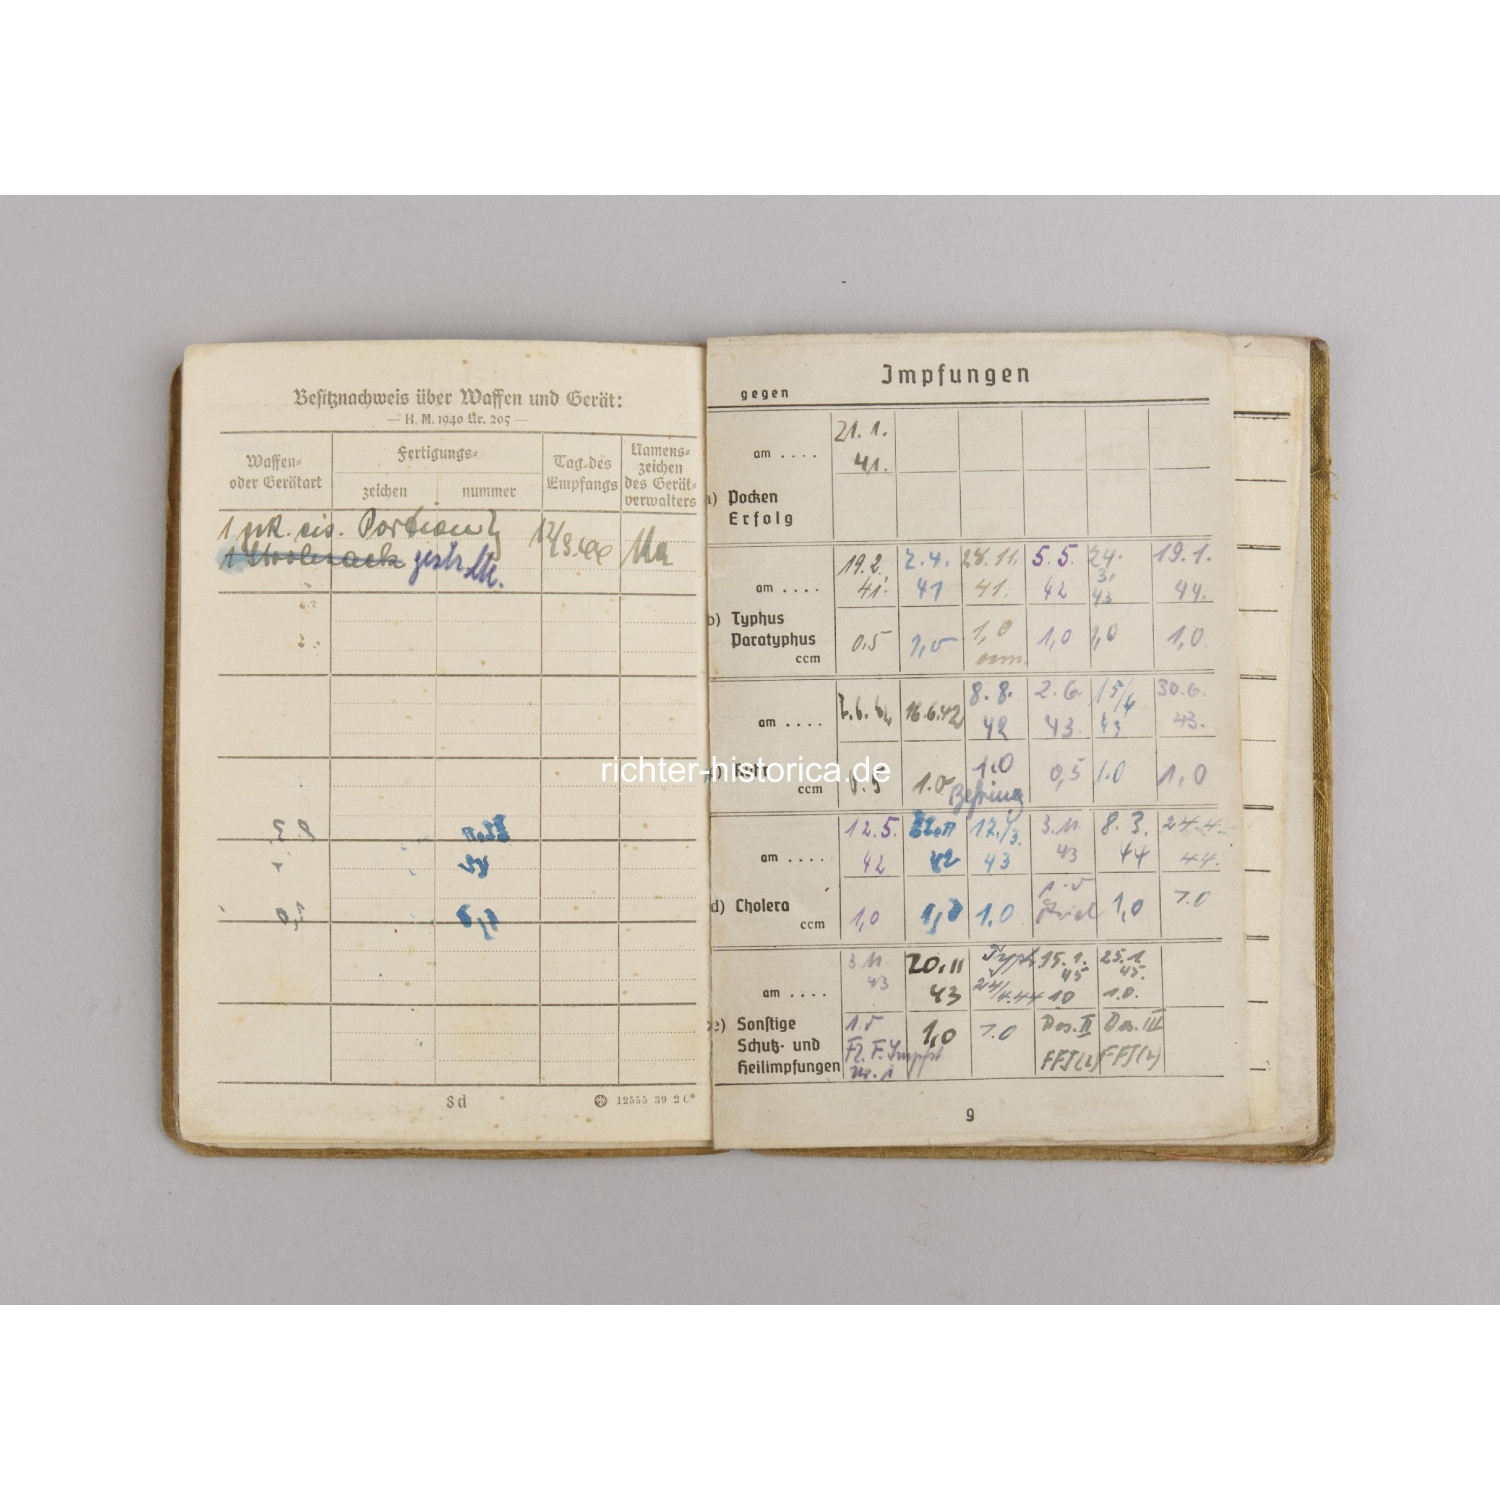 Besitznachweis über Waffen und Gerät:
— H. M. 1940 Nr. 205 —
Waffen- oder Gerätart
Fertigungs-
zeichen
nummer
Tag des Empfangs
Namens-zeichen des Gerät-verwalters
1 Portion
8d
12555 39 2 C*
Impfungen
gegen
am ....
21. 1. 41.
a) Pocken
Erfolg
am ....
19.2. 41. 2.4. 41 28.11. 41. 5.5. 42 24. 3. 43 19.1. 44.
b) Typhus
Paratyphus
ccm
0,5 1,0 1,0 1,0 1,0
am ....
16.6.42 8.8. 42 2.6. 43. 15/4 43 30.6. 43.
ccm
0.5 1.0 1.0 0,5 1.0 1,0
am ....
12.5. 42 42 12./3. 43 3.11 43 8.3. 44 24.4. 44.
d) Cholera
ccm
1,0 1,0 1.0 1,0 1.0
am ....
3.11. 43 20.11 43 24/4.44 15.1. 45 10 25.1. 45. 1.0.
e) Sonstige
Schutz- und
Heilimpfungen
1,0 1.0 Dos. II Dos. III
9
richter-historica.de